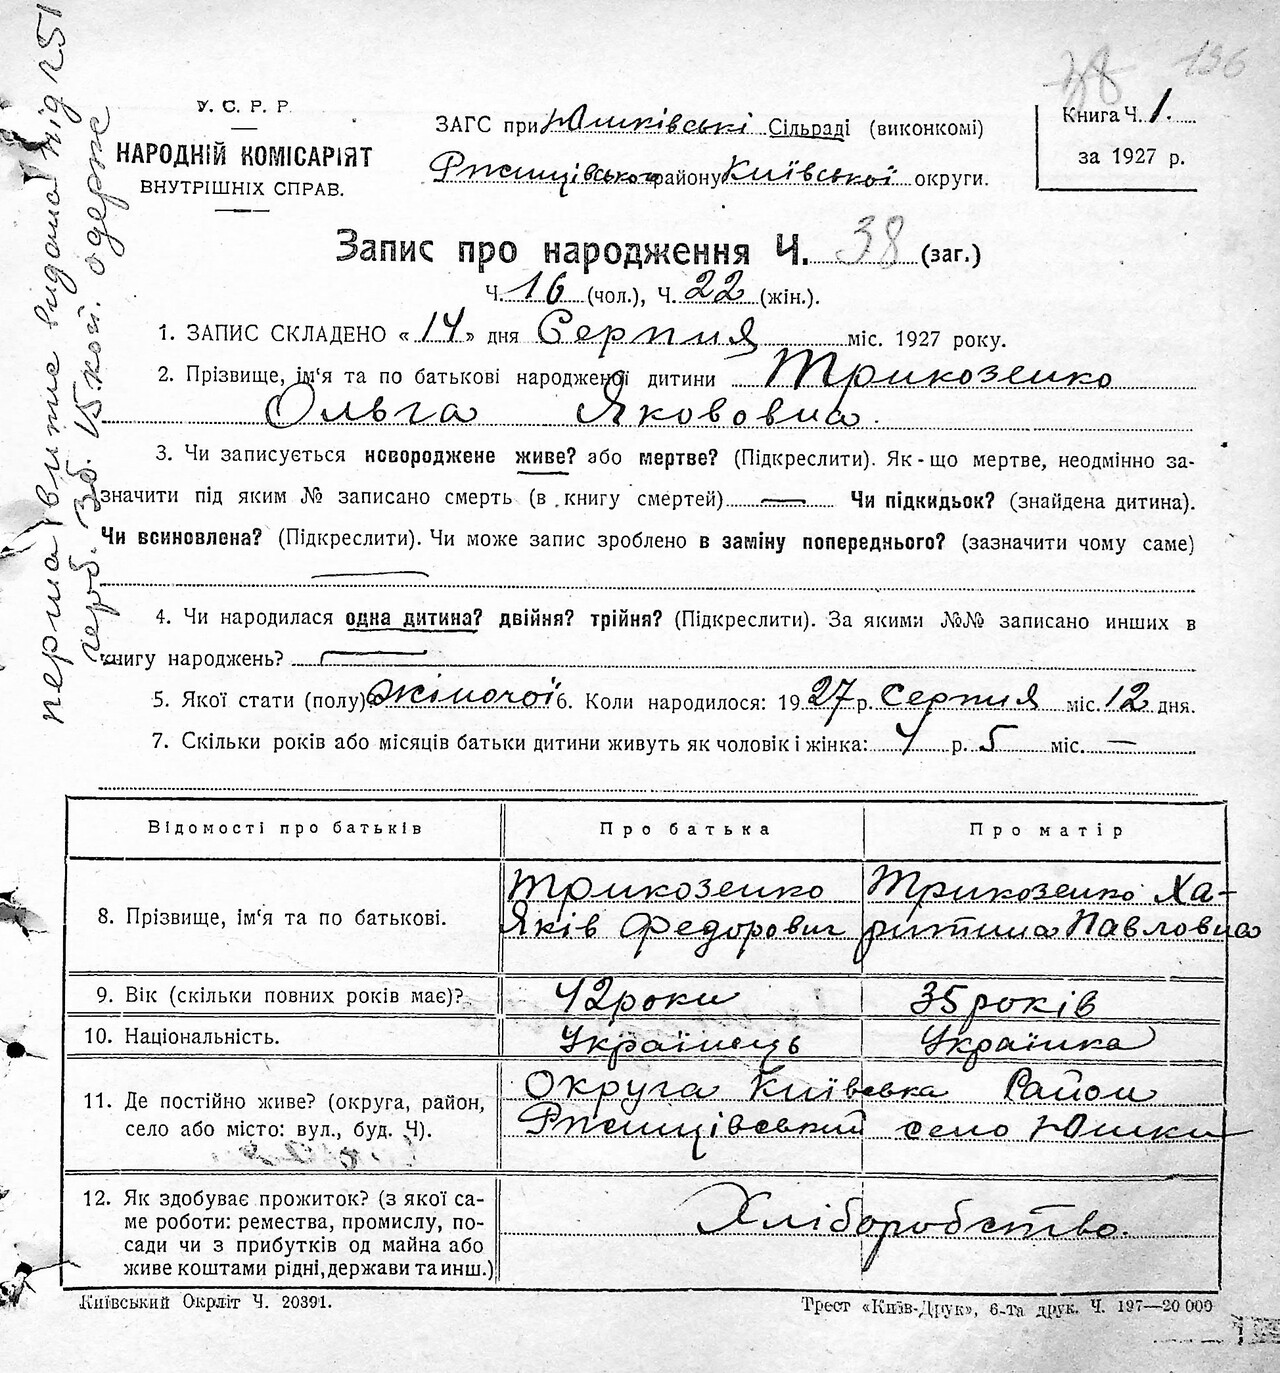 136
У. С. Р. Р.
НАРОДНІЙ КОМІСАРІЯТ
ВНУТРІШНІХ СПРАВ.
ЗАГС при Юшківські Сільраді (виконкомі)
Ржищівського району Київської округи.
Книга Ч. 1.
за 1927 р.
Запис про народження Ч. 38 (заг.)
Ч. 16 (чол.), Ч. 22 (жін.).
1. ЗАПИС СКЛАДЕНО «14» дня Серпня міс. 1927 року.
2. Прізвище, ім‘я та по батькові народженої дитини Трикозенко
Ольга Якововна.
3. Чи записується новороджене живе? або мертве? (Підкреслити). Як-що мертве, неодмінно за-
значити під яким № записано смерть (в книгу смертей) — Чи підкидьок? (знайдена дитина).
Чи всиновлена? (Підкреслити). Чи може запис зроблено в заміну попереднього? (зазначити чому саме)
—
4. Чи народилася одна дитина? двійня? трійня? (Підкреслити). За якими №№ записано инших в
книгу народжень? —
5. Якої стати (полу) жіночої 6. Коли народилося: 1927 р. Серпня міс. 12 дня.
7. Скільки років або місяців батьки дитини живуть як чоловік і жінка: 4 р. 5 міс. —
Відомості про батьків
Про батька
Про матір
8. Прізвище, ім‘я та по батькові.
Трикозенко
Яків Федорович
Трикозенко Ха-
ритина Павловна
9. Вік (скільки повних років має)?
42 роки
35 років
10. Національність.
Українець
Українка
11. Де постійно живе? (округа, район,
село або місто: вул., буд. Ч).
Округа Київська Район
Ржищівський село Юшки
12. Як здобуває прожиток? (з якої са-
ме роботи: ремества, промислу, по-
сади чи з прибутків од майна або
живе коштами рідні, держави та инш.)
Хліборобство.
Київський Окрліт Ч. 20391.
Трест «Київ-Друк», 6-та друк. Ч. 197—20 000
перша витяг видана під 251
герб. зб. 15 коп. одерж